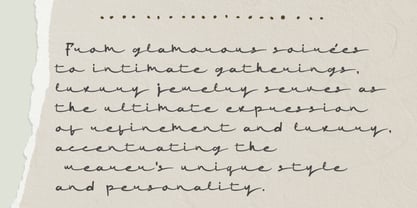 From glamorous soirées
to intimate gatherings,
luxury jewelry serves as
the ultimate expression
of refinement and luxury,
accentuating the
wearer's unique style
and personality.